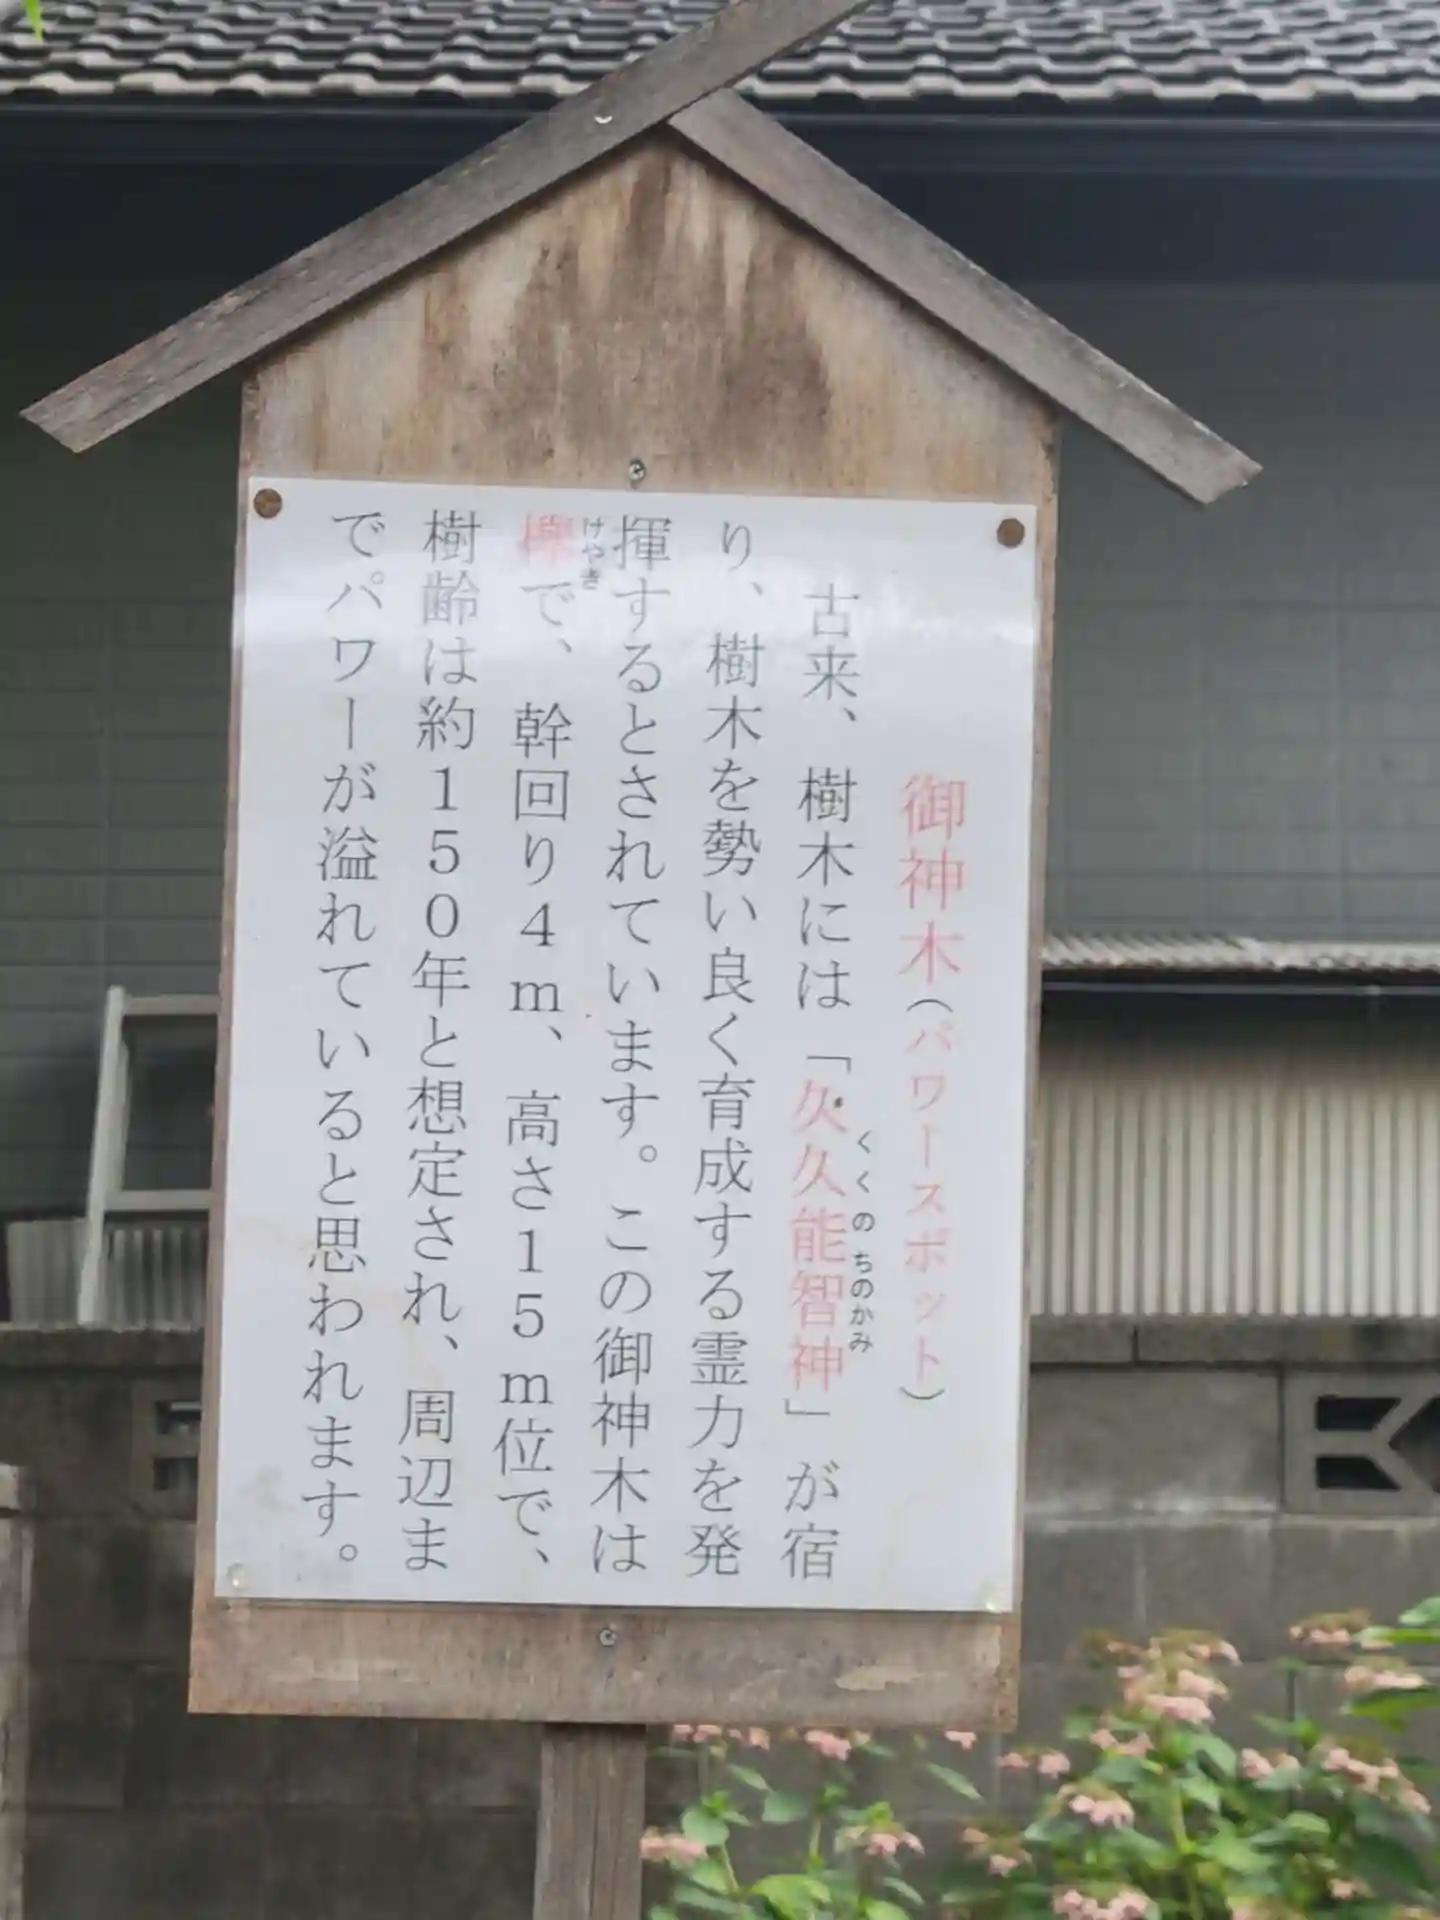 御神木(パワースポット)
古来、樹木には「久久能智神」が宿
くくのちのかみ
り、樹木を勢い良く育成する霊力を発
揮するとされています。この御神木は
けやき
欅で、幹回り4m、高さ15m位で、
樹齢は約150年と想定され、周辺ま
でパワーが溢れていると思われます。